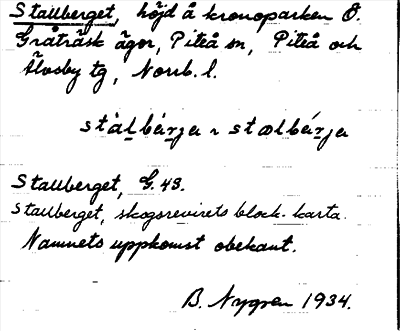 Stallberget, höjd å kronoparken Ö.
Gråträsk ägor, Piteå sn, Piteå och
Älvsby tg, Norrb. l.
stàlbärja ~ stælbärja
Stallberget, G. 43.
Stallberget, skogsrevirets block-karta.
Namnets uppkomst obekant.
B. Nygren 1934.